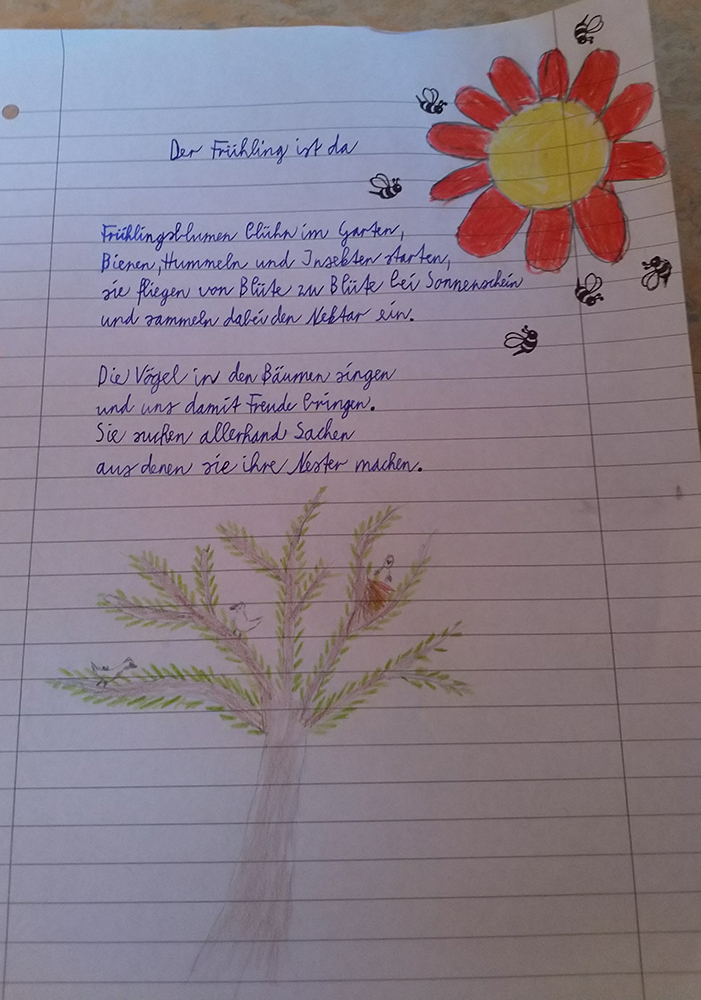 Der Frühling ist da
Frühlingsblumen blühn im Garten,
Bienen, Hummeln und Insekten starten,
sie fliegen von Blüte zu Blüte bei Sonnenschein
und sammeln dabei den Nektar ein.
Die Vögel in den Bäumen singen
und uns damit Freude bringen.
Sie suchen allerhand Sachen
aus denen sie ihre Nester machen.